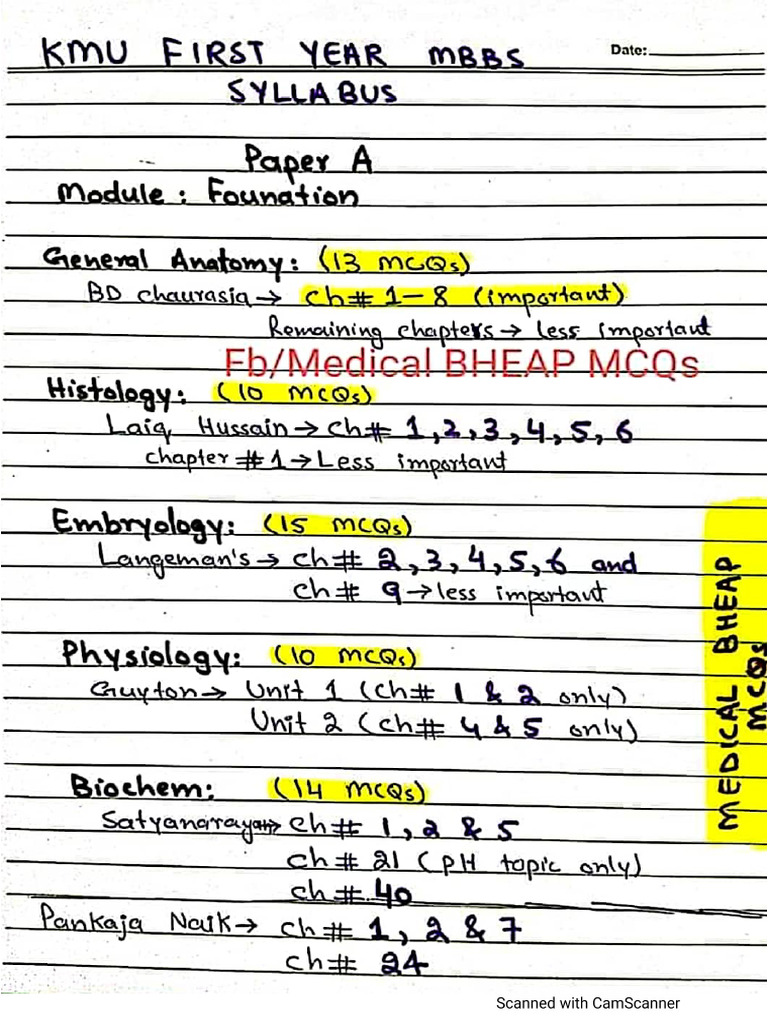 KMU FIRST YEAR MBBS
Date:
SYLLABUS
Paper A
Module : Founation
General Anatomy: (13 MCQs)
BD chaurasia → ch# 1-8 (important)
Remaining chapters → less important
Fb/Medical BHEAP MCQs
Histology: (10 MCQs)
Laiq Hussain → ch# 1,2,3,4,5,6
chapter # 1 → Less important
Embryology: (15 MCQs)
Langeman's → ch# 2,3,4,5,6 and
ch# 9 → less important
Physiology: (10 MCQs)
Guyton → Unit 1 (ch# 1 & 2 only)
Unit 2 (ch# 4 & 5 only)
MEDICAL BHEAP
MCQs
Biochem: (14 MCQs)
Satyanarayan → ch# 1,2 & 5
ch# 21 (PH topic only)
ch# 40
Pankaja Naik → ch# 1, 2 & 7
ch# 24
Scanned with CamScanner